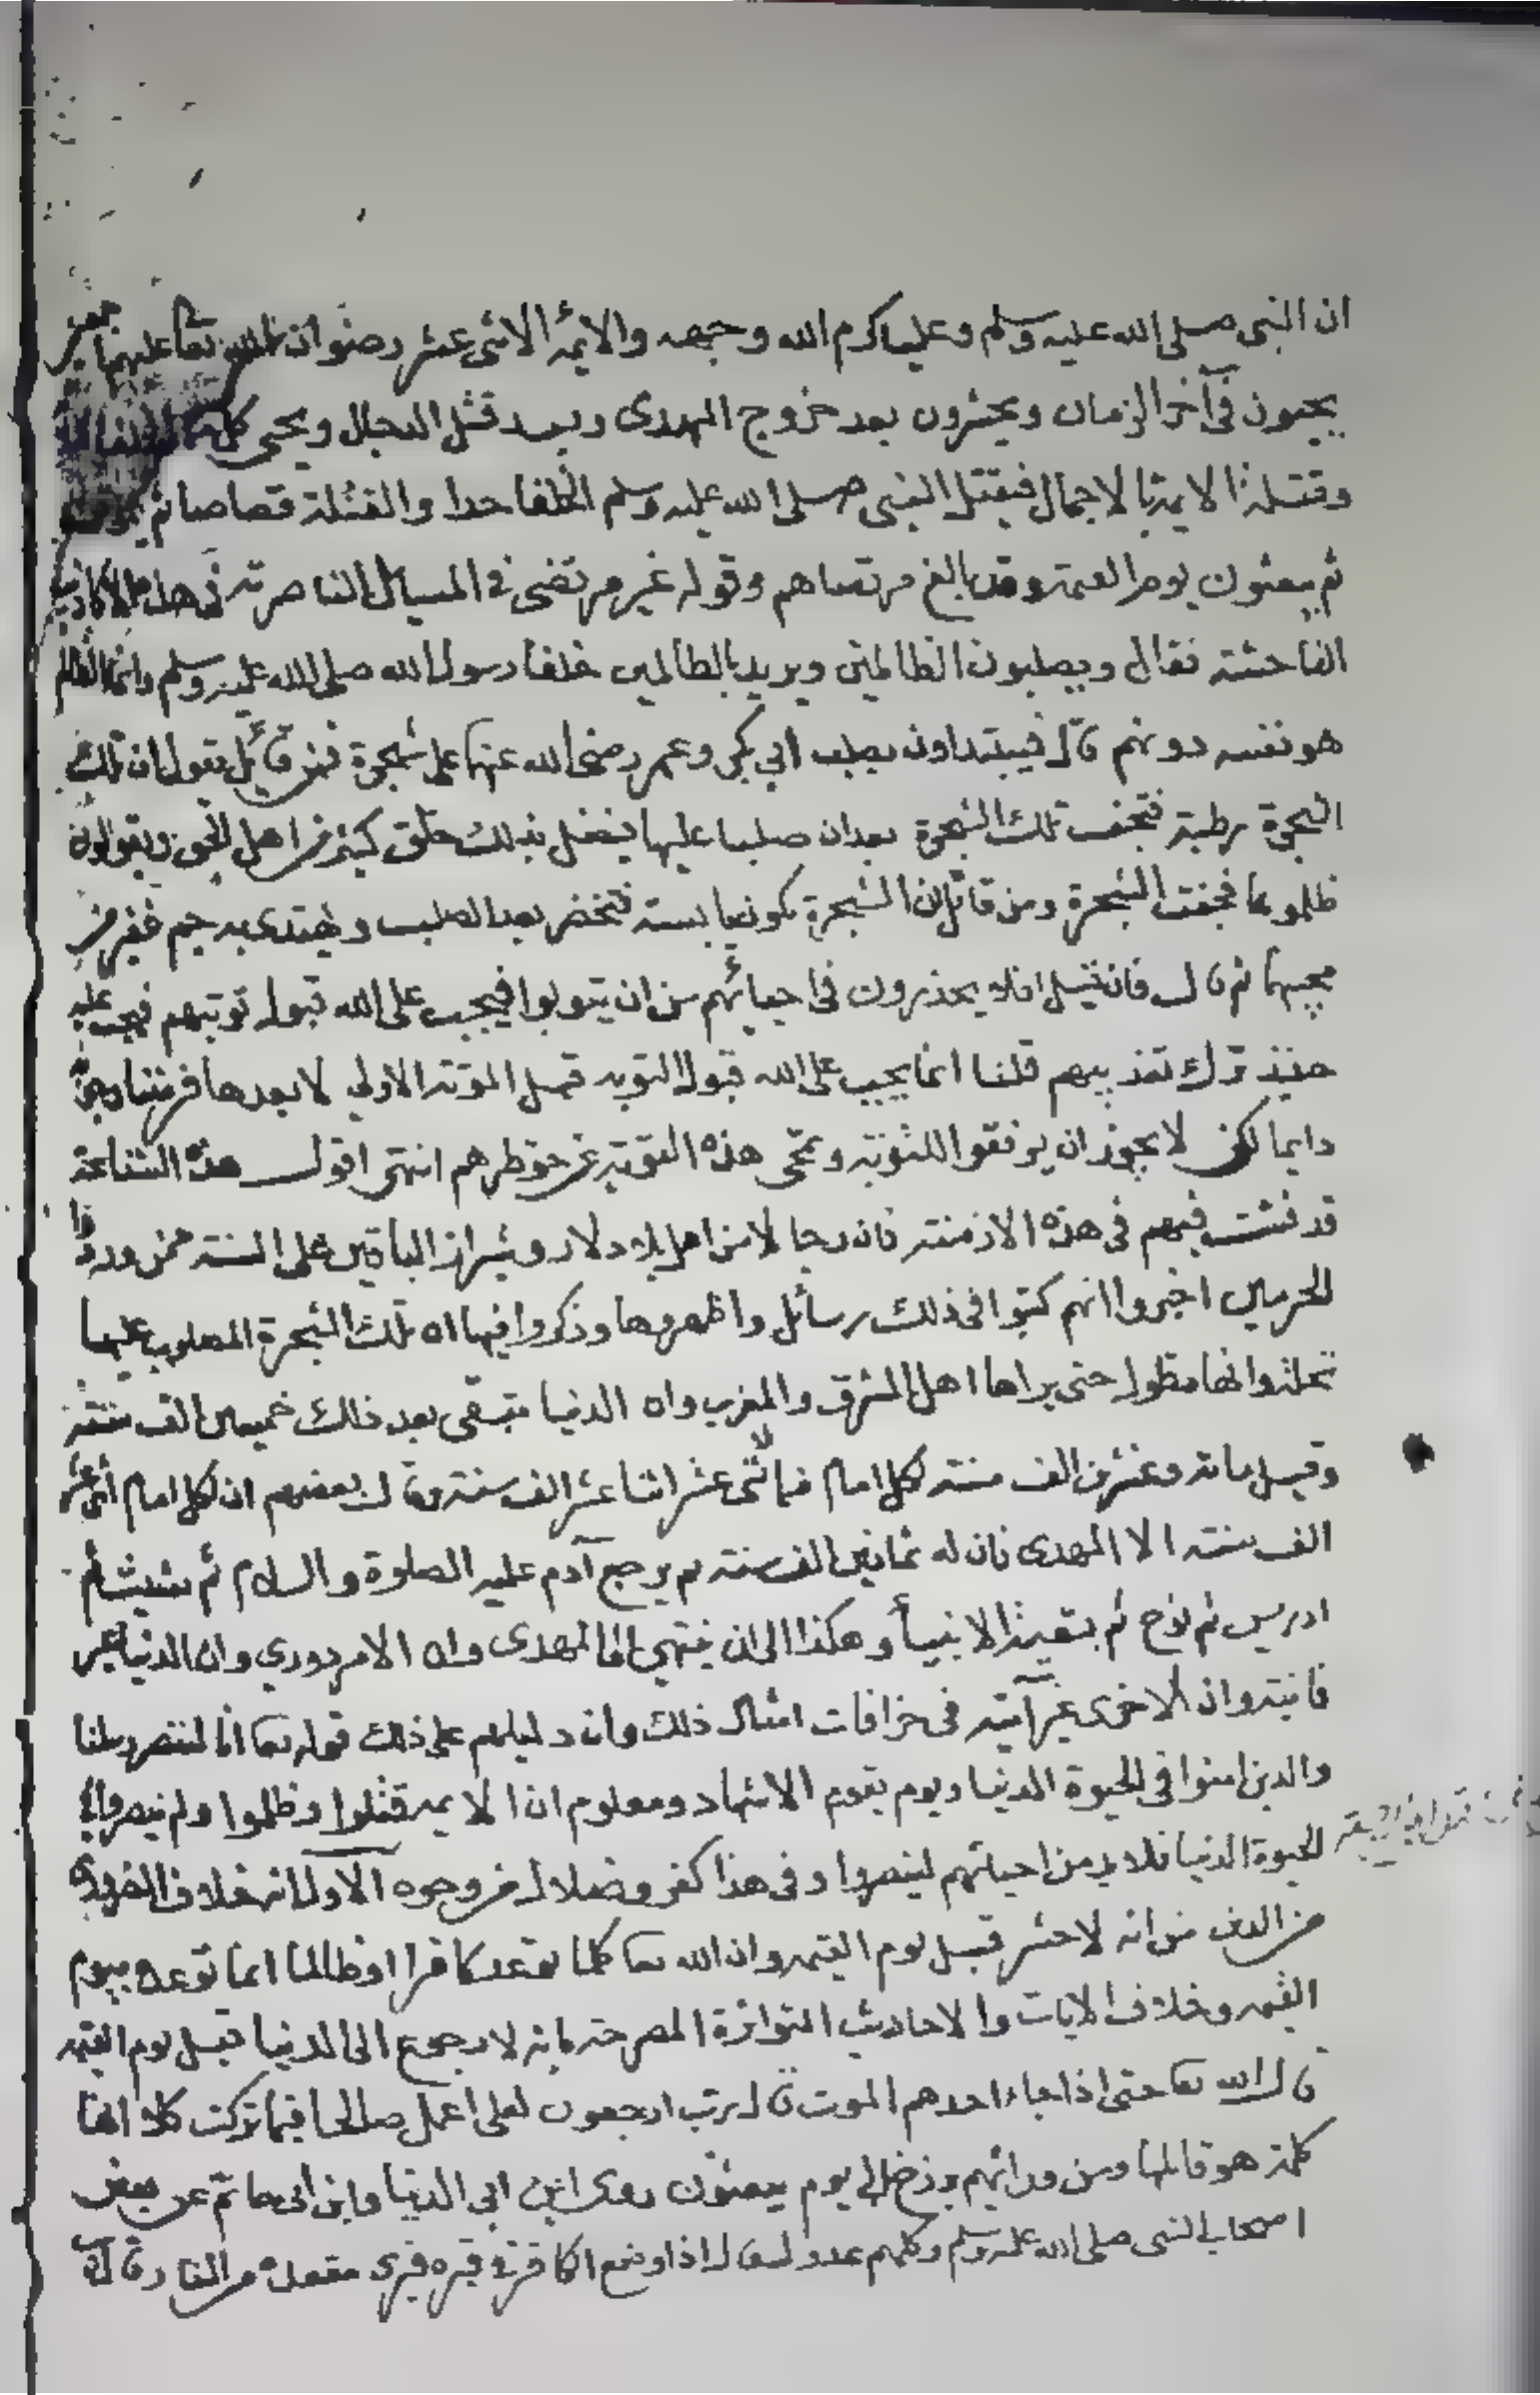 ان النبى صلى الله عليه وسلم وعليا كرم الله وجهه والايمة الاثنى عشر رضوان الله تعا عليهم
يحيون فى آخر الزمان ويحشرون بعد خروج المهدى وبعد قتل الدجال ويحيى كل
وقتلة الايمة بالاجمال فيقتل النبى صلى الله عليه وسلم الخلفا حدا والقتلة قصاصا ثم
ثم يبعثون يوم القيمة وقد بالغ مرتضاهم وقوله غير مرتضى فى المسائل الناصرية فى هذه
الفاحشة فقال ويصلبون الظالمين ويريد بالظالمين خلفا رسول الله صلى الله عليه وسلم وانما الظالم
هو نفسه دونهم قال فيبتداون بصلب ابي بكر وعمر رضى الله عنهما على شجرة فمن قائل يقول ان تلك
الشجرة رطبة فتجف تلك الشجرة بعد ان صلبا عليها فيضل بذلك خلق كثير من اهل الحق ويقولون
ظلموهما فجفت الشجرة ومن قائل ان الشجرة تكون يابسة فتخضر بعد الصلب ويهتدى به جم غفير من
محبيهما ثم قال فان قيل افلا يحذرون فى احيائهم من ان يتوبوا فيجب على الله قبول توبتهم فيجب عليه
حينئذ ترك تعذيبهم قلنا انما يجب على الله قبول التوبة قبل الموتة الاولى لا بعدها
دايما لكن لا يجوز ان يوفقوا للتوبة وتمحى هذه التوبة عن خواطرهم انتهى اقول هذه الشناعة
قد فشت فيهم فى هذه الازمنة فان رجالا من اهل بلاد لار وشيراز الباقين على السنة ممن وردوا
الحرمين اخبروا انهم كتبوا فى ذلك رسائل واظهروها وذكروا فيها ان تلك الشجرة المصلوب عليها
نخلة وانها تطول حتى يراها اهل المشرق والمغرب وان الدنيا تبقى بعد ذلك خمسين الف سنة
وقيل ماية وعشرين الف سنة لكل امام من الاثنى عشر اثنا عشر الف سنة وقال بعضهم ان لكل امام اثنى عشر
الف سنة الا المهدى فان له ثمانين الف سنة ثم يرجع آدم عليه الصلوة والسلام ثم شيث ثم
ادريس ثم نوح ثم بقية الانبياء وهكذا الى ان ينتهى الى المهدى وان الامر دوري وان الدنيا غير
فانية وان الاخرى غير آتية فى خرافات امثال ذلك وان دليلهم على ذلك قوله تعا انا لننصر رسلنا
والذين امنوا فى الحيوة الدنيا ويوم يقوم الاشهاد ومعلوم ان الايمة قتلوا وظلموا ولم ينصروا فى
الحيوة الدنيا فلا بد من احيائهم لينصروا وفى هذا كفر وضلال من وجوه الاول انه خلاف الضرورى
من الدين من انه لا حشر قبل يوم القيمة وان الله تعا كلما توعد كافرا او ظالما انما توعده بيوم
القيمة وخلاف الايات والاحاديث المتواترة المصرحة بانه لا رجوع الى الدنيا قبل يوم القيمة
قال الله تعا حتى اذا جاء احدهم الموت قال رب ارجعون لعلى اعمل صالحا فيما تركت كلا انها
كلمة هو قائلها ومن ورائهم برزخ الى يوم يبعثون روى ابن ابي الدنيا وابن ابى حاتم عن بعض
اصحاب النبى صلى الله عليه وسلم وكلهم عدول قال اذا وضع الكافر فى قبره فيرى مقعده من النار قال